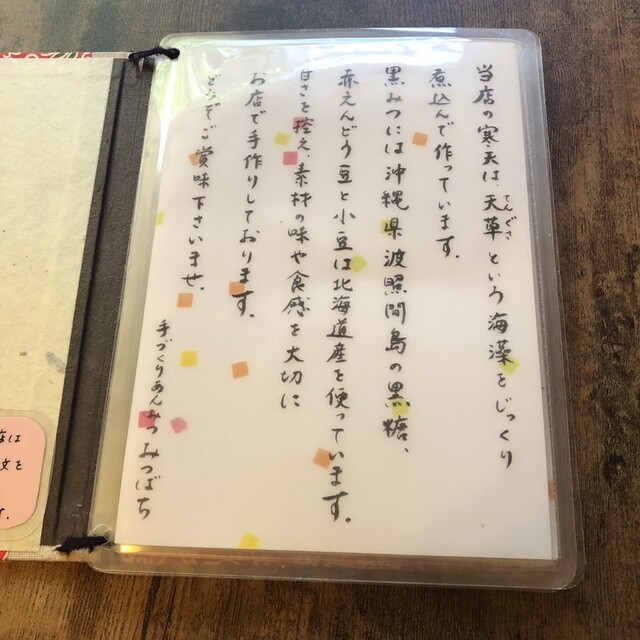 当店の寒天は、天草という海藻をじっくり
てんぐさ
煮込んで作っています。
黒みつには沖縄県波照間島の黒糖、
赤えんどう豆と小豆は北海道産を使っています。
甘さを控え、素材の味や食感を大切に
お店で手作りしております。
どうぞご賞味下さいませ。
手づくりあんみつ みつばち
店は
文を
す。